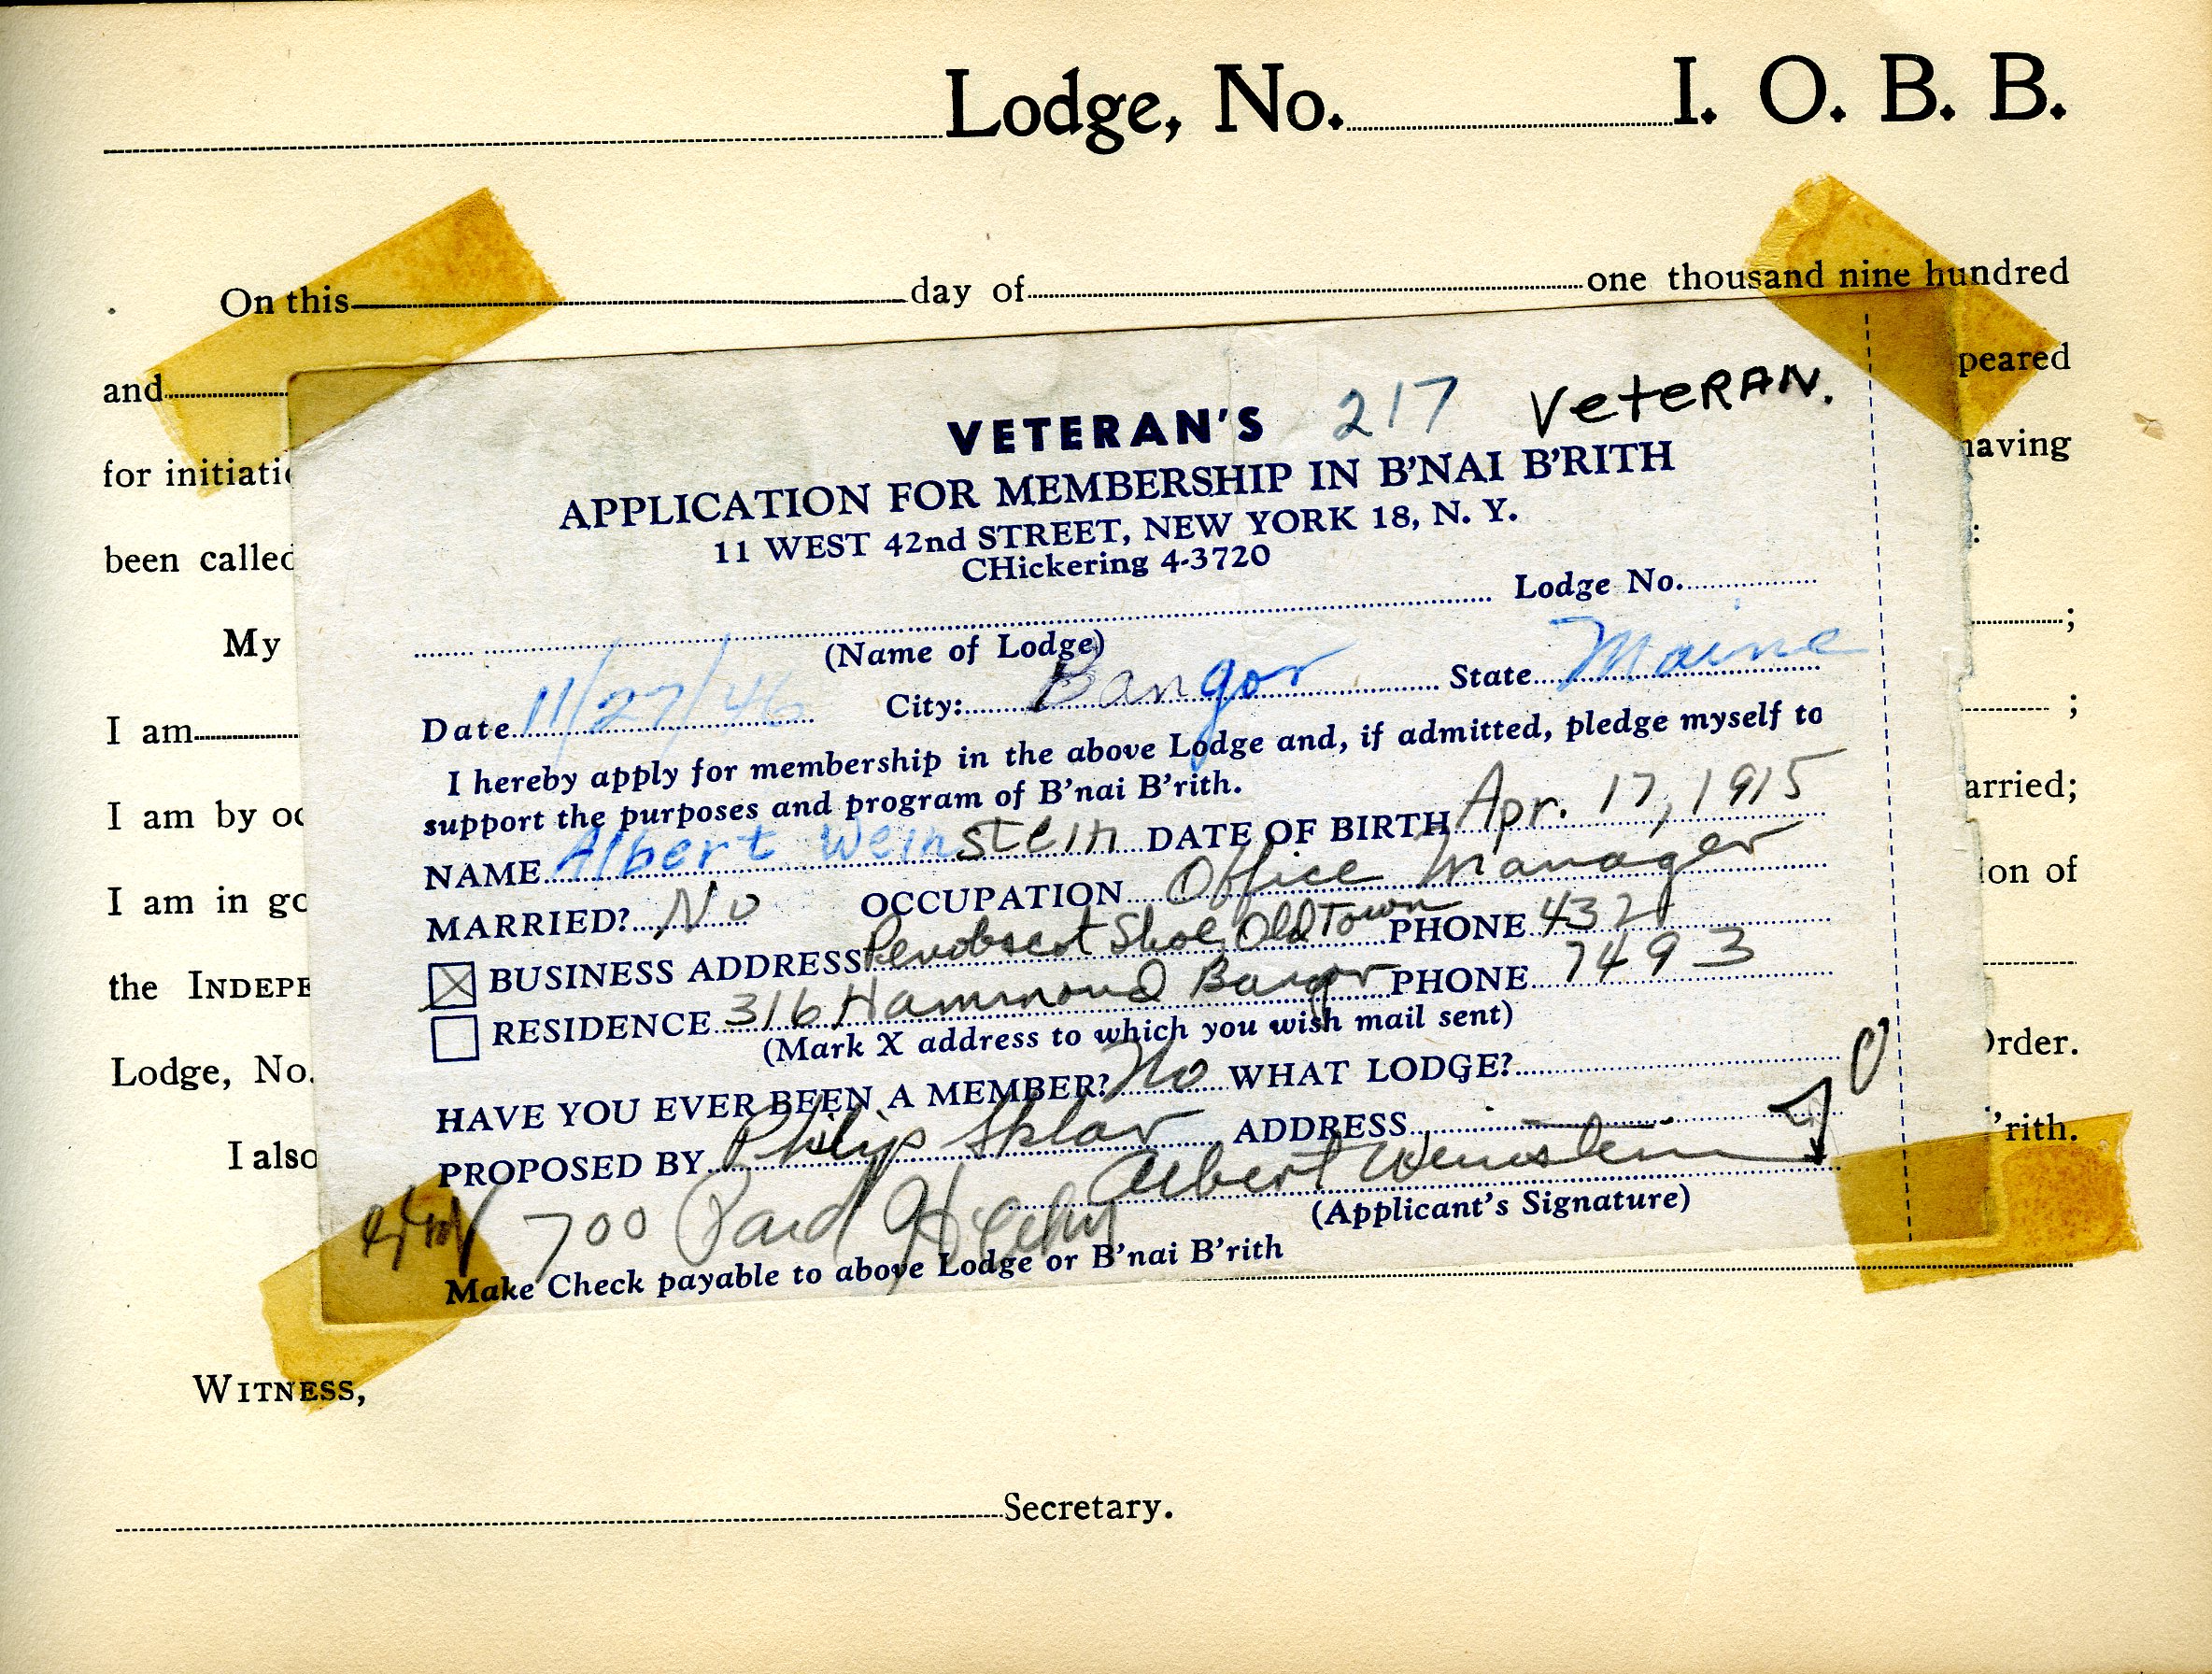 Lodge, No. I. O. B. B.
On this day of one thousand nine hundred
and peared
VETERAN'S 217 VeteRAN.
for initiati having
APPLICATION FOR MEMBERSHIP IN B'NAI B'RITH
11 WEST 42nd STREET, NEW YORK 18, N. Y.
been called :
CHickering 4-3720
Lodge No.
My ;
(Name of Lodge)
Date 11/27/46 City: Bangor State Maine
I am ;
I hereby apply for membership in the above Lodge and, if admitted, pledge myself to
support the purposes and program of B'nai B'rith.
I am by oc arried;
NAME Albert Weinstein DATE OF BIRTH Apr. 17, 1915
MARRIED? No OCCUPATION Office Manager
I am in go ion of
BUSINESS ADDRESS Penobscot Shoe, Old Town PHONE 432
the INDEPE
RESIDENCE 316 Hammond Bangor PHONE 7493
(Mark X address to which you wish mail sent)
Lodge, No. Order.
HAVE YOU EVER BEEN A MEMBER? No WHAT LODGE?
PROPOSED BY Philip Sklar ADDRESS
I also 'rith.
Albert Weinstein
(Applicant's Signature)
700 Paid
Make Check payable to above Lodge or B'nai B'rith
WITNESS,
Secretary.